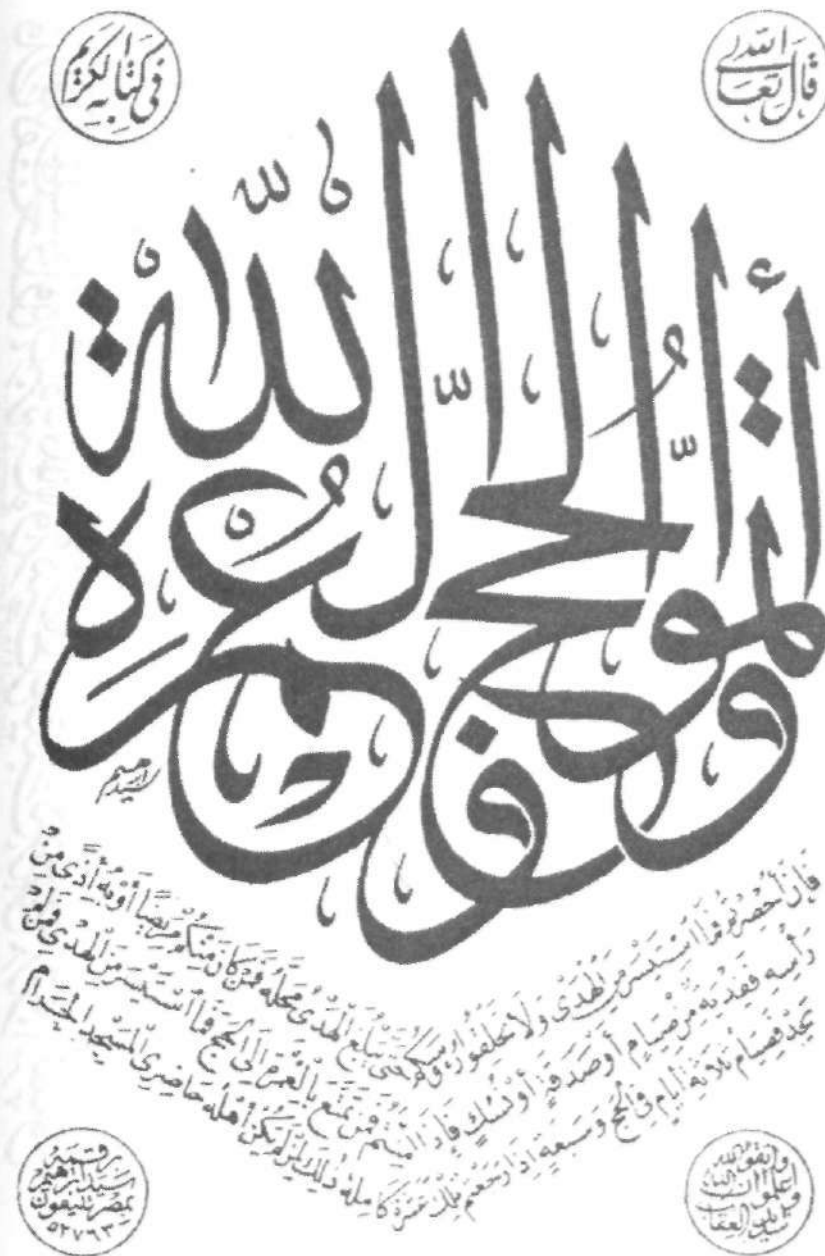 قال الله تعالى
في كتابه الكريم
وأتموا الحج والعمرة لله
سيد إبراهيم
فَإِنْ أُحْصِرْتُمْ فَمَا اسْتَيْسَرَ مِنَ الْهَدْىِ وَلَا تَحْلِقُوا رُءُوسَكُمْ حَتَّىٰ يَبْلُغَ الْهَدْىُ مَحِلَّهُ فَمَنْ كَانَ مِنْكُمْ مَرِيضًا أَوْ بِهِ أَذًى مِنْ
رَأْسِهِ فَفِدْيَةٌ مِنْ صِيَامٍ أَوْ صَدَقَةٍ أَوْ نُسُكٍ فَإِذَا أَمِنْتُمْ فَمَنْ تَمَتَّعَ بِالْعُمْرَةِ إِلَى الْحَجِّ فَمَا اسْتَيْسَرَ مِنَ الْهَدْىِ فَمَنْ لَمْ
يَجِدْ فَصِيَامُ ثَلَاثَةِ أَيَّامٍ فِي الْحَجِّ وَسَبْعَةٍ إِذَا رَجَعْتُمْ تِلْكَ عَشَرَةٌ كَامِلَةٌ ذَٰلِكَ لِمَنْ لَمْ يَكُنْ أَهْلُهُ حَاضِرِى الْمَسْجِدِ الْحَرَامِ
واتقوا الله
واعلموا أن الله
شديد العقاب
رقمه
سيد إبراهيم
بمصر تليفون
٥٢٧٦٣